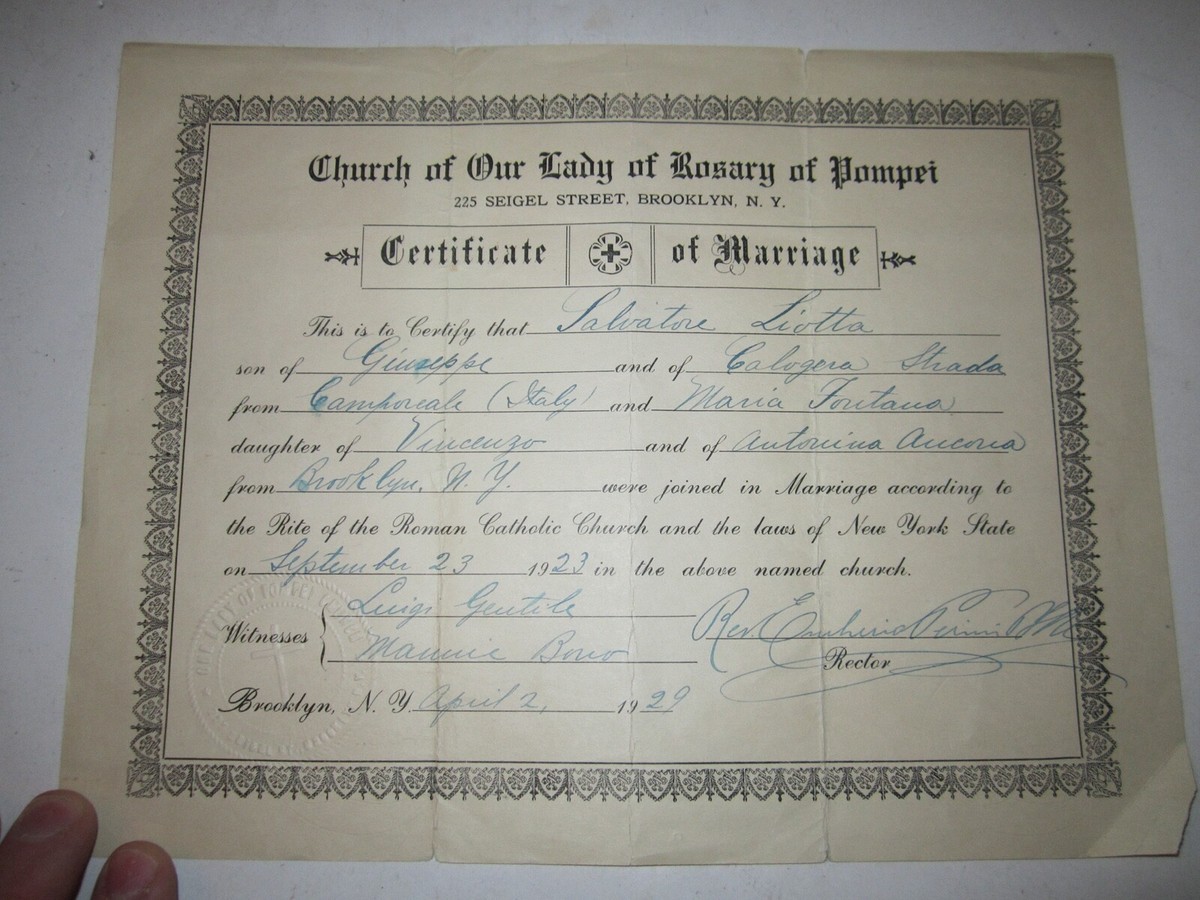 Church of Our Lady of Rosary of Pompei
225 SEIGEL STREET, BROOKLYN, N. Y.
Certificate of Marriage
This is to Certify that Salvatore Liotta
son of Giuseppe and of Calogera Strada
from Camporeale (Italy) and Maria Fontana
daughter of Vincenzo and of Antonina Ancona
from Brooklyn, N. Y. were joined in Marriage according to
the Rite of the Roman Catholic Church and the laws of New York State
on September 23 1923 in the above named church.
Luigi Gentile
Witnesses
Mamie Bono
Rev.
Rector
Brooklyn, N. Y. April 2, 1929